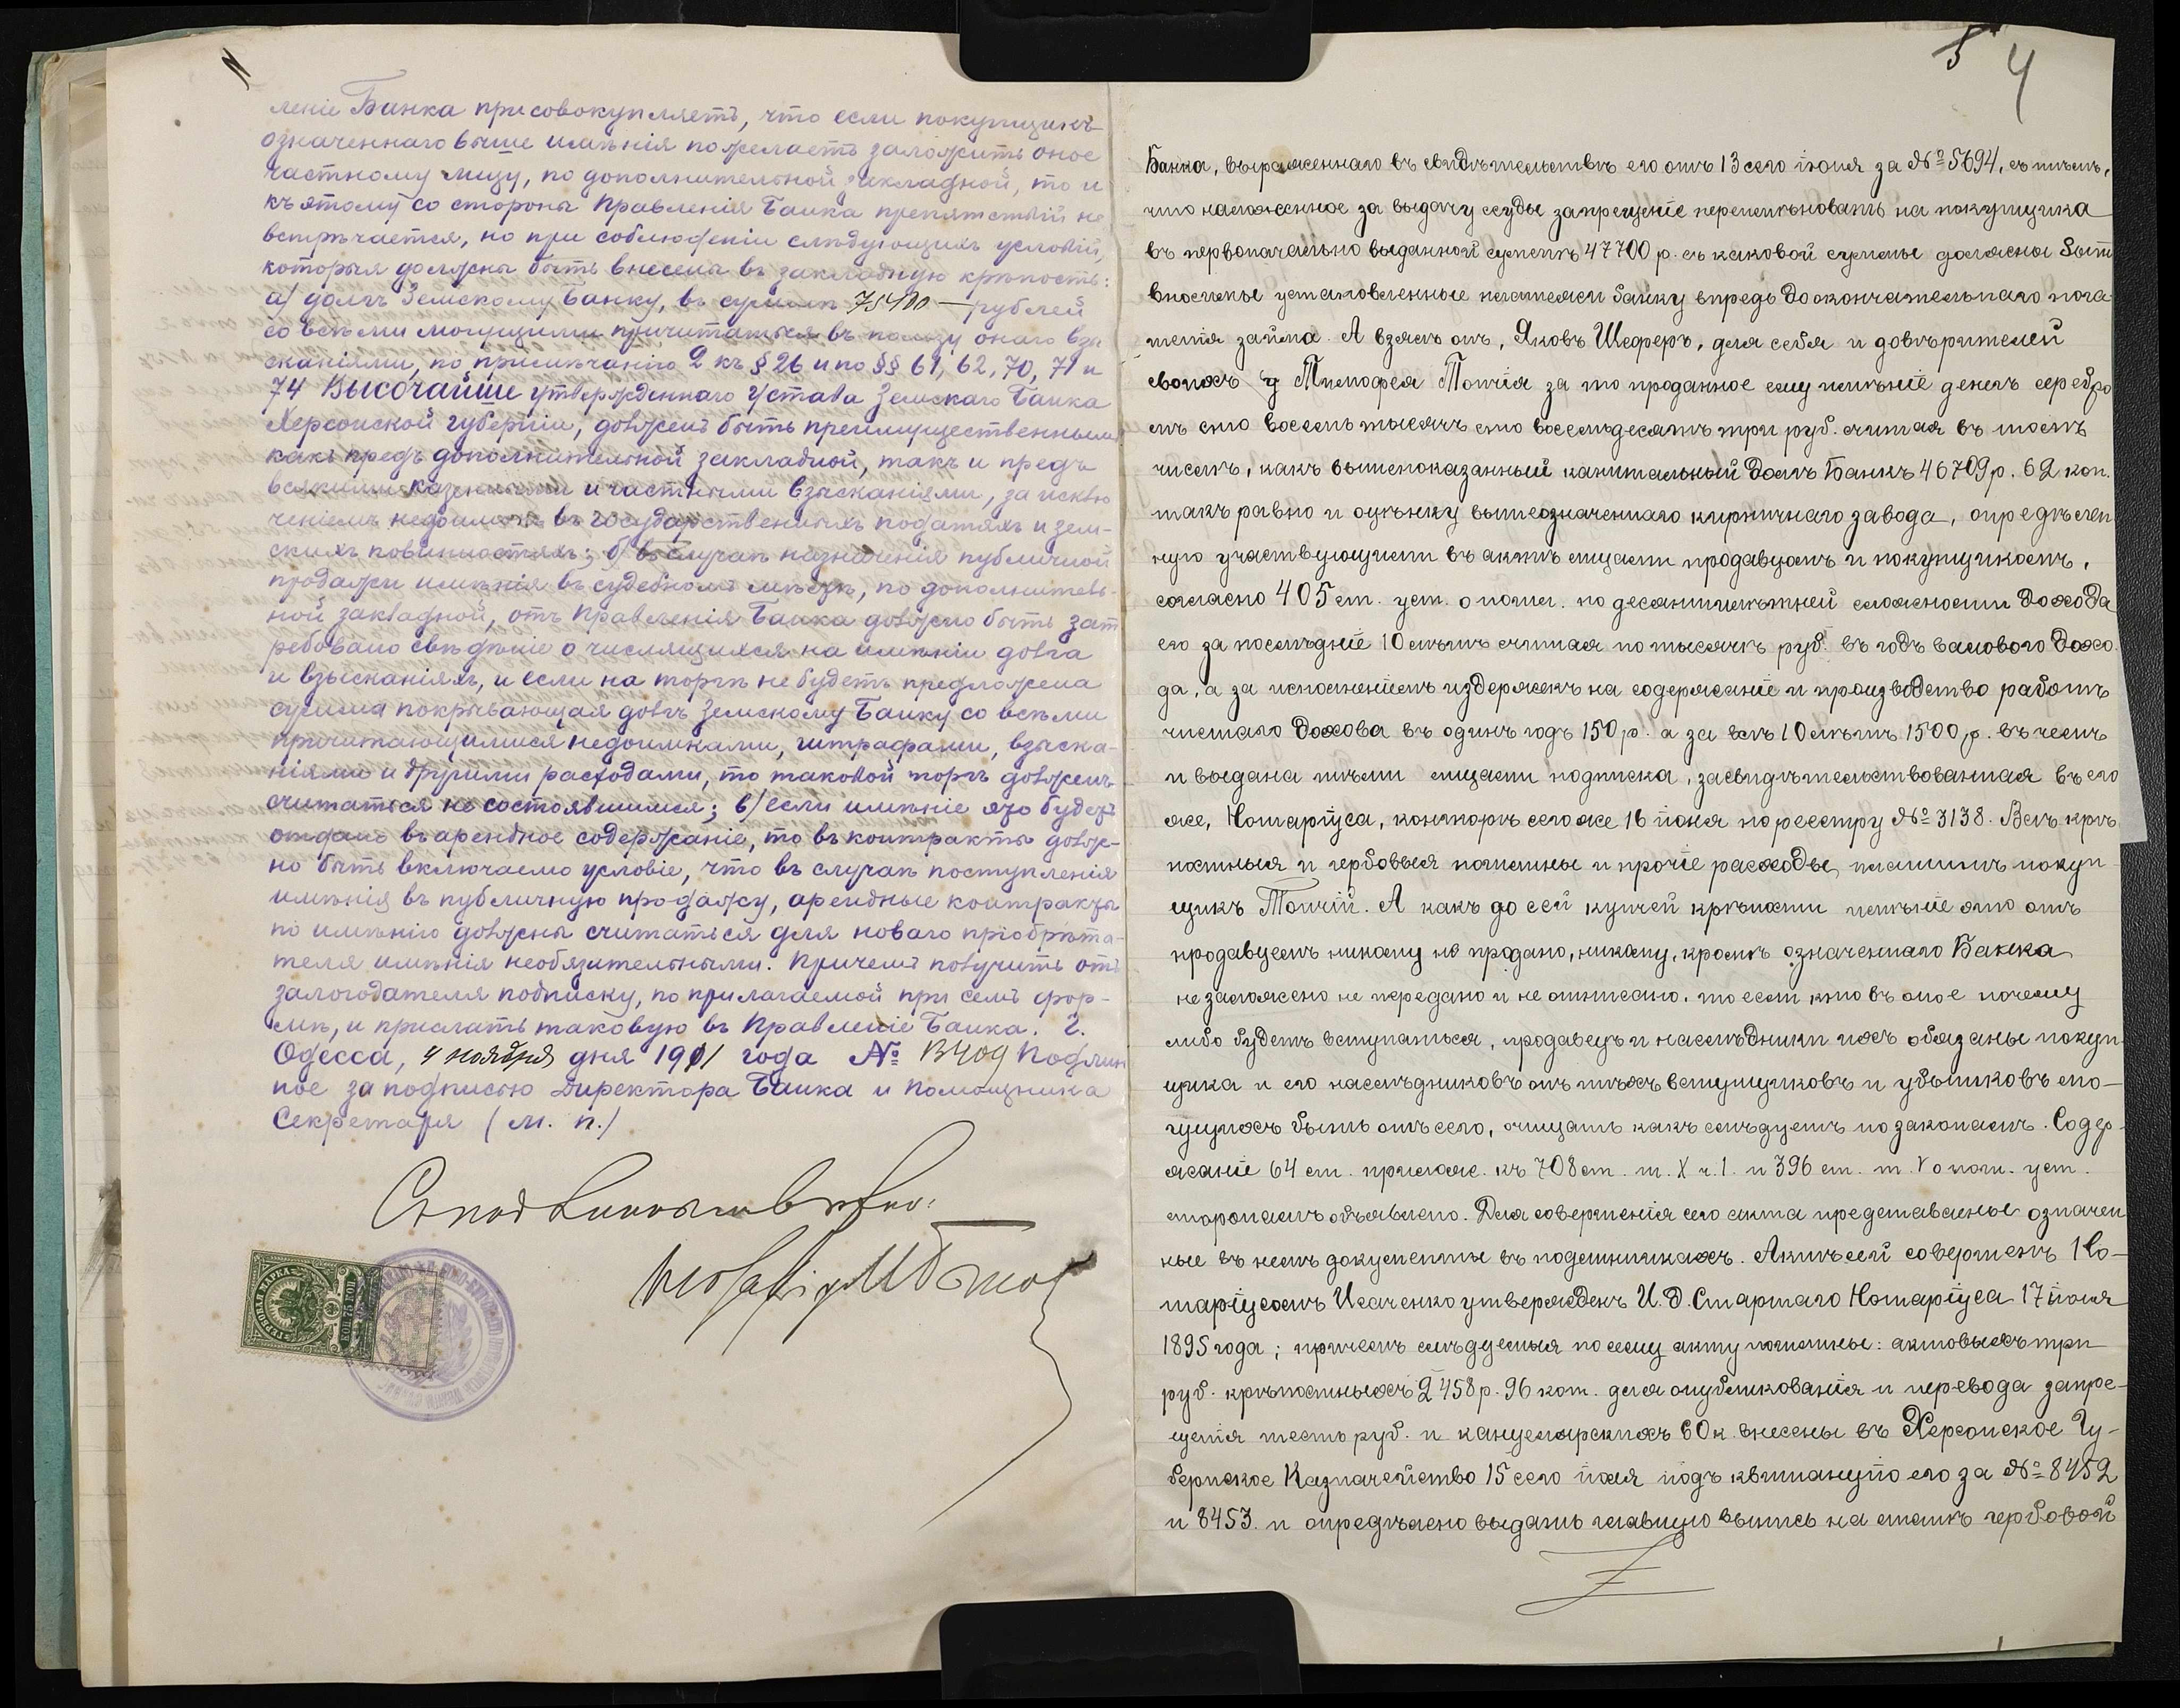 леніе Банка присовокупляетъ, что если покупщикъ
означеннаго выше имѣнія пожелаетъ заложить оное
частному лицу, по дополнительной закладной, то и
къ этому со стороны Правленія Банка препятствій не
встрѣчается, но при соблюденіи слѣдующихъ условій,
которыя должны быть внесены въ закладную крѣпость:
а) долгъ Земскому Банку, въ суммѣ 75400 — рублей
со всѣми могущими причитаться въ пользу онаго взы
сканіями, по примѣчанію 2 къ § 26 и по §§ 61, 62, 70, 71 и
74 Высочайше утвержденнаго Устава Земскаго Банка
Херсонской губерніи, долженъ быть преимущественнымъ
какъ предъ дополнительной закладной, такъ и предъ
всякими казенными и частными взысканіями, за исклю
ченіемъ недоимокъ въ государственныхъ податяхъ и зем-
скихъ повинностяхъ; б) въ случаѣ назначенія публичной
продажи имѣнія въ судебномъ мѣстѣ, по дополнитель-
ной закладной, отъ Правленія Банка должно быть зат
ребовано свѣдѣніе о числящихся на имѣніи долга
и взысканіяхъ, и если на торгѣ не будетъ предложена
сумма покрывающая долгъ Земскому Банку со всѣми
причитающимися недоимками, штрафами, взыска-
ніями и другими расходами, то таковой торгъ долженъ
считаться не состоявшимся; в) если имѣніе это будетъ
отдано въ арендное содержаніе, то въ контракты долж-
но быть включаемо условіе, что въ случаѣ поступленія
имѣнія въ публичную продажу, арендные контракты
по имѣнію должны считаться для новаго пріобрѣта-
теля имѣнія необязательными. Причемъ получить отъ
залогодателя подписку, по прилагаемой при семъ фор-
мѣ, и прислать таковую въ Правленіе Банка. Г.
Одесса, 4 ноября дня 1911 года № Подлин
ное за подписью Директора Банка и Помощника
Секретаря (м. п.)
Съ подлиннымъ вѣрно:
ГЕРБОВАЯ МАРКА
75 КОП
5 4
Банка, выраженнаго въ свидѣтельствѣ его отъ 13 сего іюня за № 5694, съ тѣмъ,
что наложенное за выдачу ссуды запрещеніе переименовать на покупщика
въ первоначально выданной суммѣ 47700 р. съ каковой суммы должны быть
вносимы установленные платежи банку впредь до окончательнаго пога-
шенія займа. А взялъ онъ, Яковъ Шеферъ, для себя и довѣрителей
своихъ у Тимофея Топчія за то проданное ему имѣніе денегъ серебро
мъ сто восемь тысячъ сто восемьдесятъ три руб. считая въ томъ
числѣ, какъ вышепоказанный капитальный долгъ Банкъ 46709 р. 62 коп.
такъ равно и оцѣнку вышеозначеннаго кирпичнаго завода, опредѣлен
ную участвующими въ актѣ лицами продавцомъ и покупщикомъ,
согласно 405 ст. уст. о пошл. по десятилѣтней сложности дохода
его за послѣдніе 10 лѣтъ считая по тысячѣ руб. въ годъ валового дохо-
да, а за исполненіемъ издержекъ на содержаніе и производство работъ
чистаго дохова въ одинъ годъ 150 р. а за всѣ 10 лѣтъ 1500 р. въ чемъ
и выдана тѣми лицами подписка, засвидѣтельствованная въ его
же, Нотаріуса, конторѣ сего же 16 іюня по реестру № 3138. Всѣ крѣ
постныя и гербовыя пошлины и прочіе расходы платитъ покуп
щикъ Топчій. А какъ до сей купчей крѣпости имѣніе это отъ
продавцемъ никому не продано, никому, кромѣ означеннаго Банка
не заложено не передано и не отписано, то если кто въ оное почему
либо будетъ вступаться, продавецъ и наслѣдники ихъ обязаны покуп-
щика и его наслѣдниковъ отъ тѣхъ вступщиковъ и убытковъ мо-
гущихъ быть отъ сего, очищать какъ слѣдуетъ по законамъ. Содер-
жаніе 64 ст. прилож. къ 708 ст. т. X ч. 1. и 396 ст. т. V о пошл. уст.
сторонамъ объявлено. Для совершенія сего акта представлены означен
ные въ немъ документы въ подлинникахъ. Актъ сей совершенъ Но-
таріусомъ Исаченко утвержденъ И. Д. Старшаго Нотаріуса 17 іюня
1895 года; причемъ слѣдуемыя по сему акту пошлины: актовыхъ три
руб. крѣпостныхъ 2458 р. 96 коп. для опубликованія и перевода запре-
щенія шесть руб. и канцелярскихъ 60 к. внесены въ Херсонское Гу-
бернское Казначейство 15 сего іюня подъ квитанцію его за № 8452
и 8453. и опредѣлено выдать главную выпись на листѣ гербовой